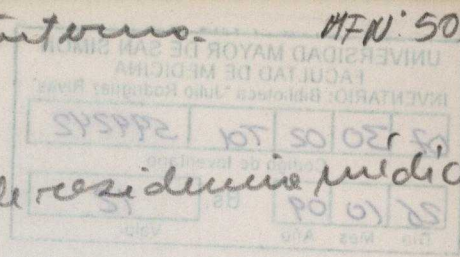 interno. MFN: 50
UNIVERSIDAD MAYOR DE SAN SIMON
FACULTAD DE MEDICINA
INVENTARIO: Biblioteca "Julio Rodriguez Rivas"
02 30 02 T01 599242
Código de Inventario
de residencia médic
26 10 09 Bs.
Día Mes Año Valor